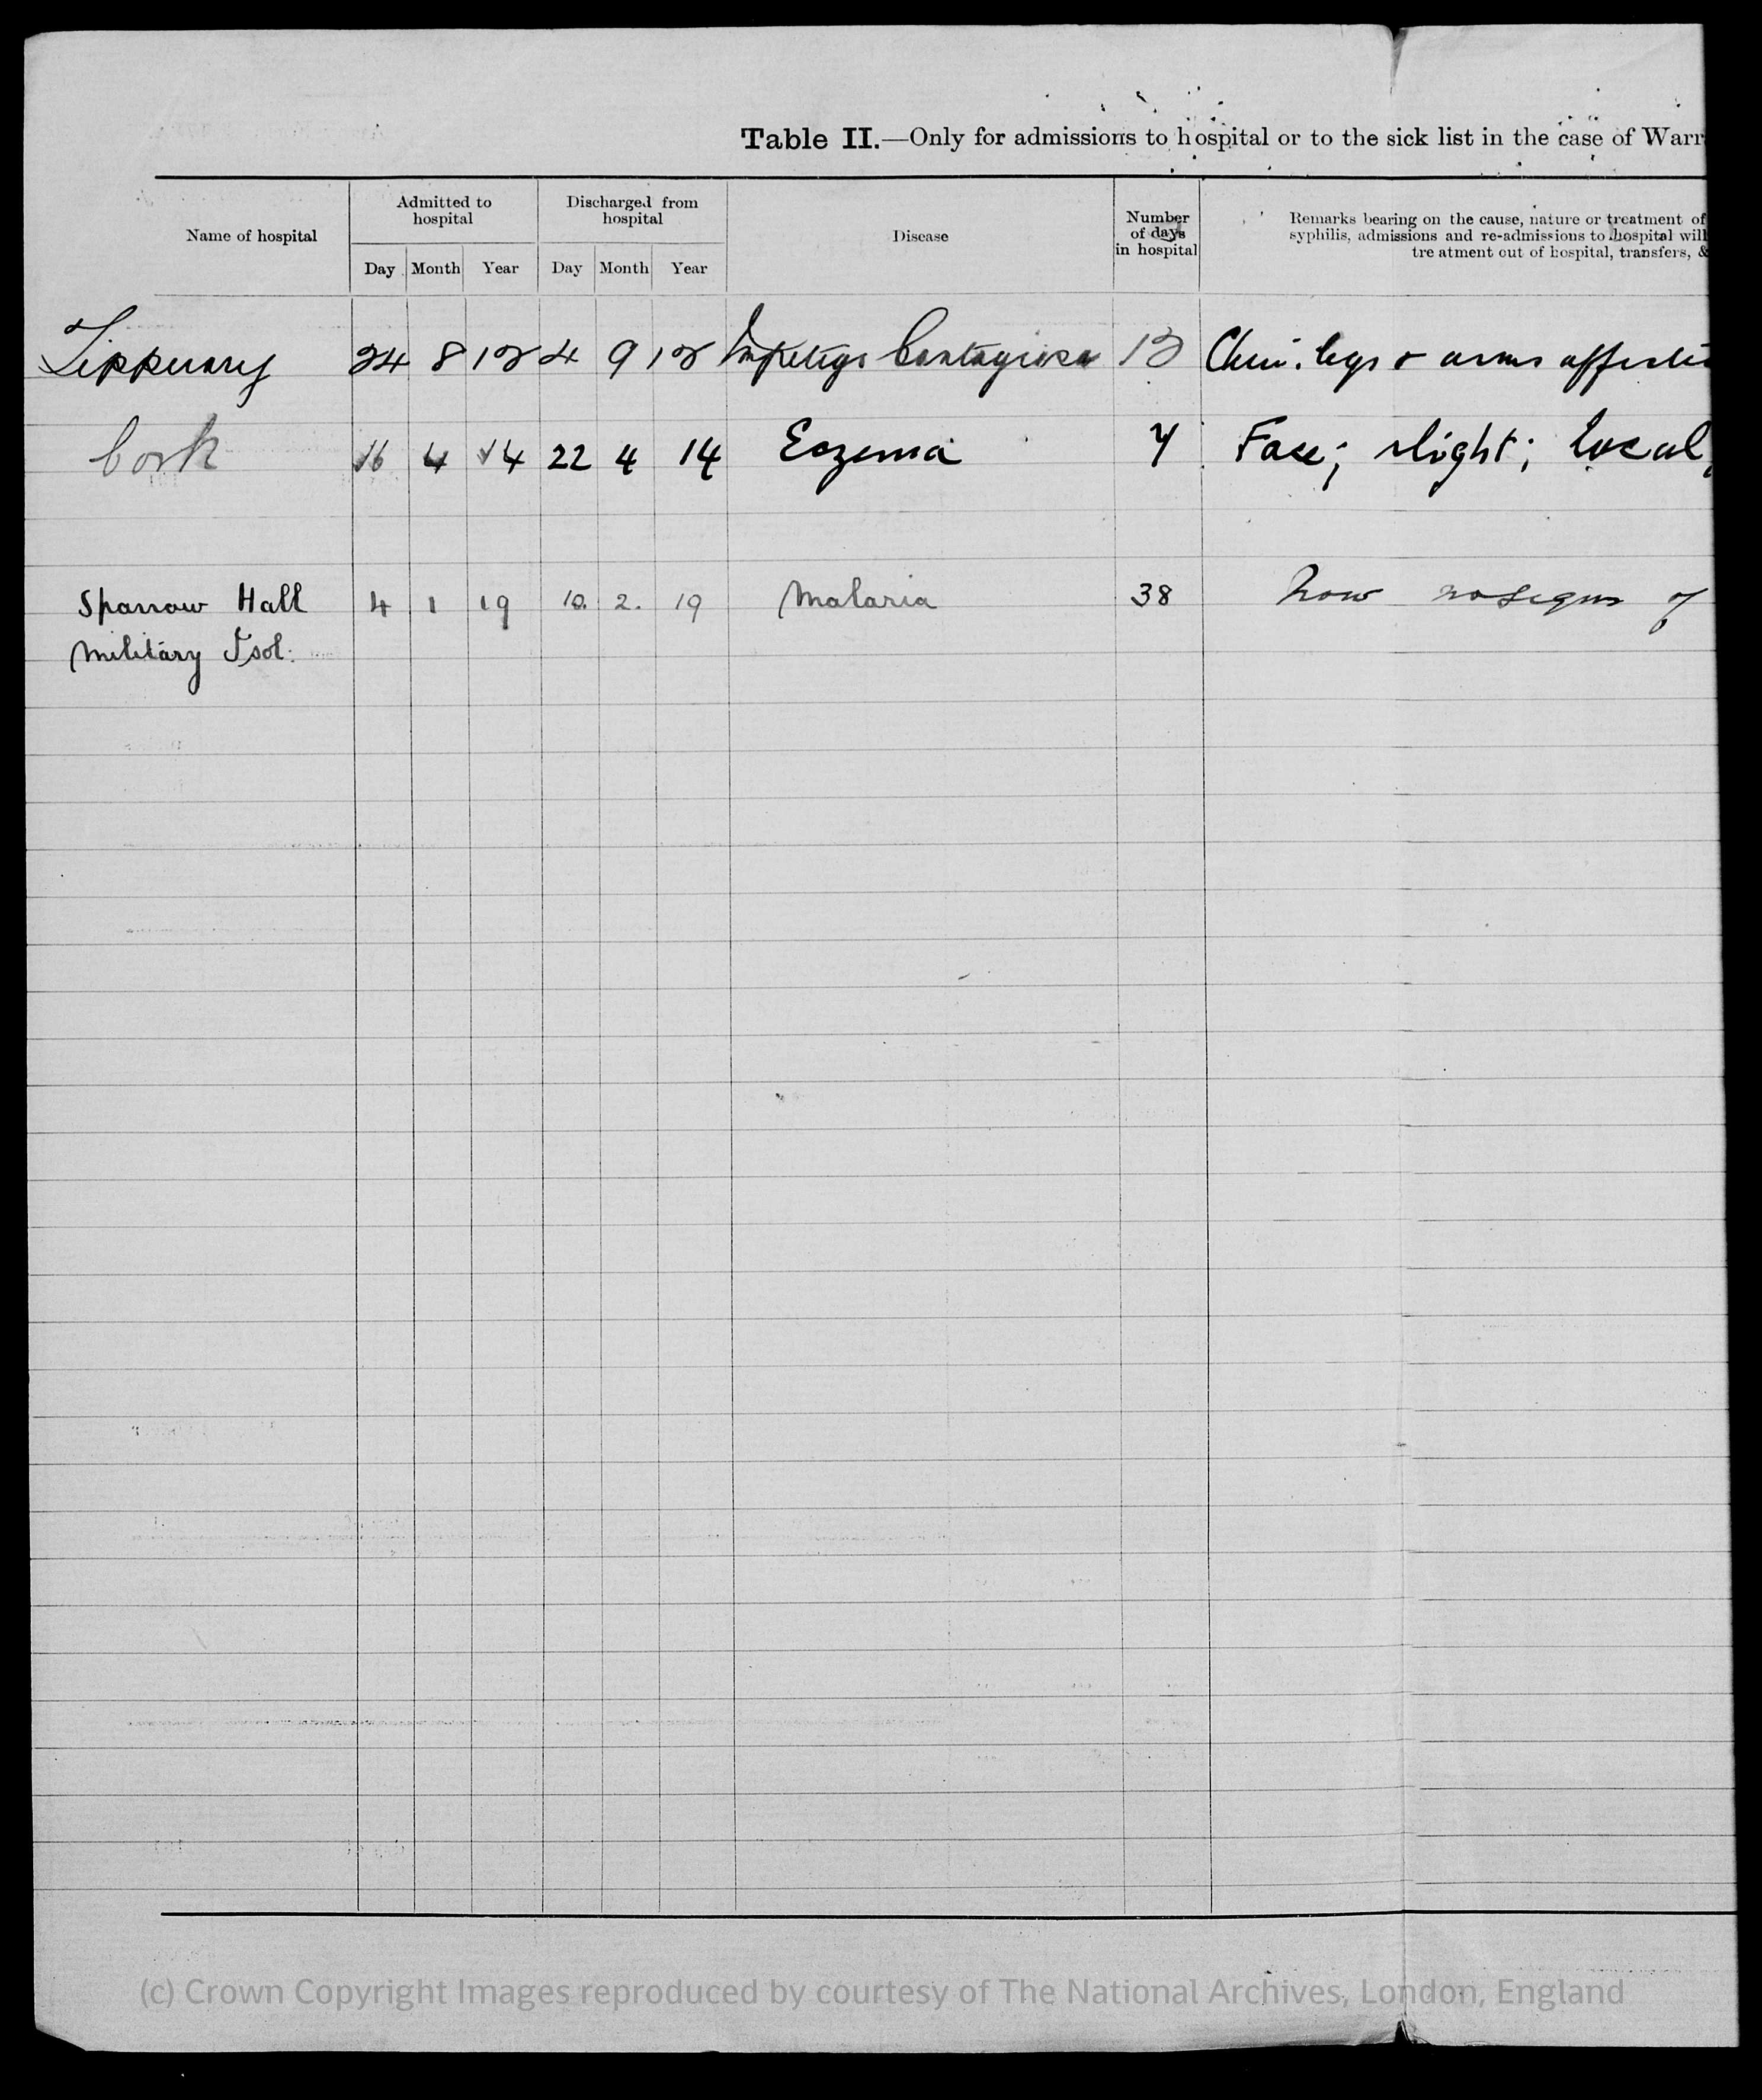 Table II.—Only for admissions to hospital or to the sick list in the case of Warr
Name of hospital
Admitted to hospital
Discharged from hospital
Disease
Number of days in hospital
Remarks bearing on the cause, nature or treatment of
syphilis, admissions and re-admissions to hospital will
tre atment out of hospital, transfers, &
Day Month Year Day Month Year
Tipperary 24 8 12 4 9 12 Impetigo Contagiosa 12 Chin. legs & arms affected
Cork 16 4 14 22 4 14 Eczema 7 Face; slight; local,
Sparrow Hall 4 1 19 10. 2. 19 Malaria 38 Now no signs of
Military Isol.
(c) Crown Copyright Images reproduced by courtesy of The National Archives, London, England